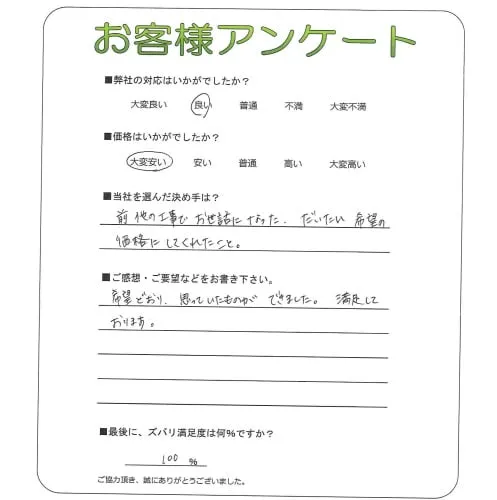 お客様アンケート
■弊社の対応はいかがでしたか？
大変良い 良い 普通 不満 大変不満
■価格はいかがでしたか？
大変安い 安い 普通 高い 大変高い
■当社を選んだ決め手は？
前 他の工事で お世話になった。だいたい 希望の
価格にしてくれたこと。
■ご感想・ご要望などをお書き下さい。
希望どおり、思っていたものが できました。 満足して
おります。
■最後に、ズバリ満足度は何％ですか？
100 %
ご協力頂き、誠にありがとうございました。